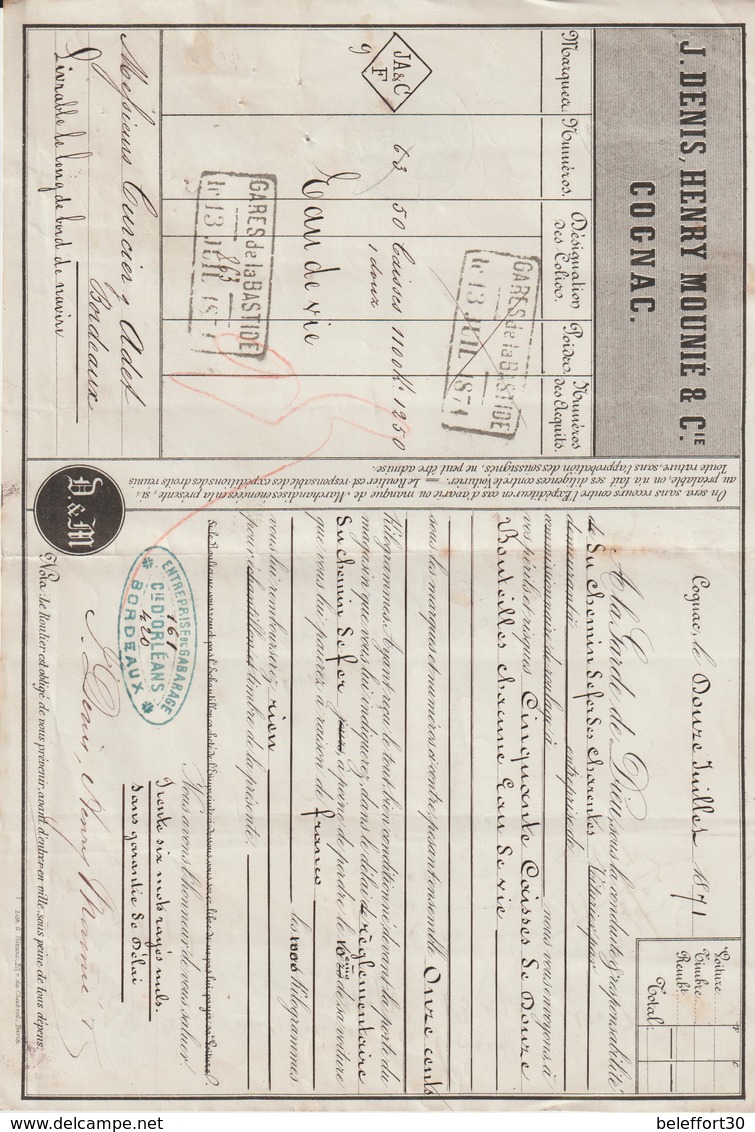 J. DENIS, HENRY MOUNIÉ & CIE
COGNAC.
Marques. Numéros. Désignation des Colis. Poids. Numéros des Acquits.
JA&C
F
9
63 50 Caisses 1100 k. 1250
1 doux
Eau de vie
GARES de la BASTIDE
le 13 JUIL 1871
GARES de la BASTIDE
863
le 13 JUIL 1871
Messieurs Curcier & Adet
Bordeaux
Livrable le long de bord de navire
On sera sans recours contre l'Expéditeur en cas d'avarie ou manque de Marchandises énoncées en la présente, si,
au préalable, on n'a fait ses diligences contre le Voiturier. = Le Roulier est responsable des expéditions des droits réunis
Toute rature, sans l'approbation des soussignés, ne peut être admise.
D. & M
Cognac, le Douze Juillet 1871
Voiture.
Timbre.
Rembt.
Total.
F C
A la Garde de Dieu, sous la conduite & responsabilité
du chemin de fer des Charentes Voiturier par
entreprise de
commissionnaire de roulage à nous vous envoyons à
vos périls et risques Cinquante Caisses de Douze
Bouteilles chacune Eau de vie
sous les marques et numéros ci-contre pesant ensemble Onze cents
Kilogrammes. Ayant reçu le tout, bien conditionné devant la porte du
magasin que vous lui indiquerez, dans le délai réglementaire
du chemin de fer à peine de perdre le 10ème de sa voiture
que vous lui paierez à raison de franco
les 1000 Kilogrammes
vous lui rembourserez rien
pour timbre de la présente.
Nous avons l'honneur de vous saluer.
Trente six mots rayés nuls.
sans garantie de Délai
ENTREPRISE DU GABARAGE
161
CIE D'ORLÉANS
420
BORDEAUX
J. Denis, Henry Mounié & C
Nota: Le Roulier est obligé de vous prévenir, avant d'entrer en ville, sous peine de tous dépens.
delcampe.net
beleffort30